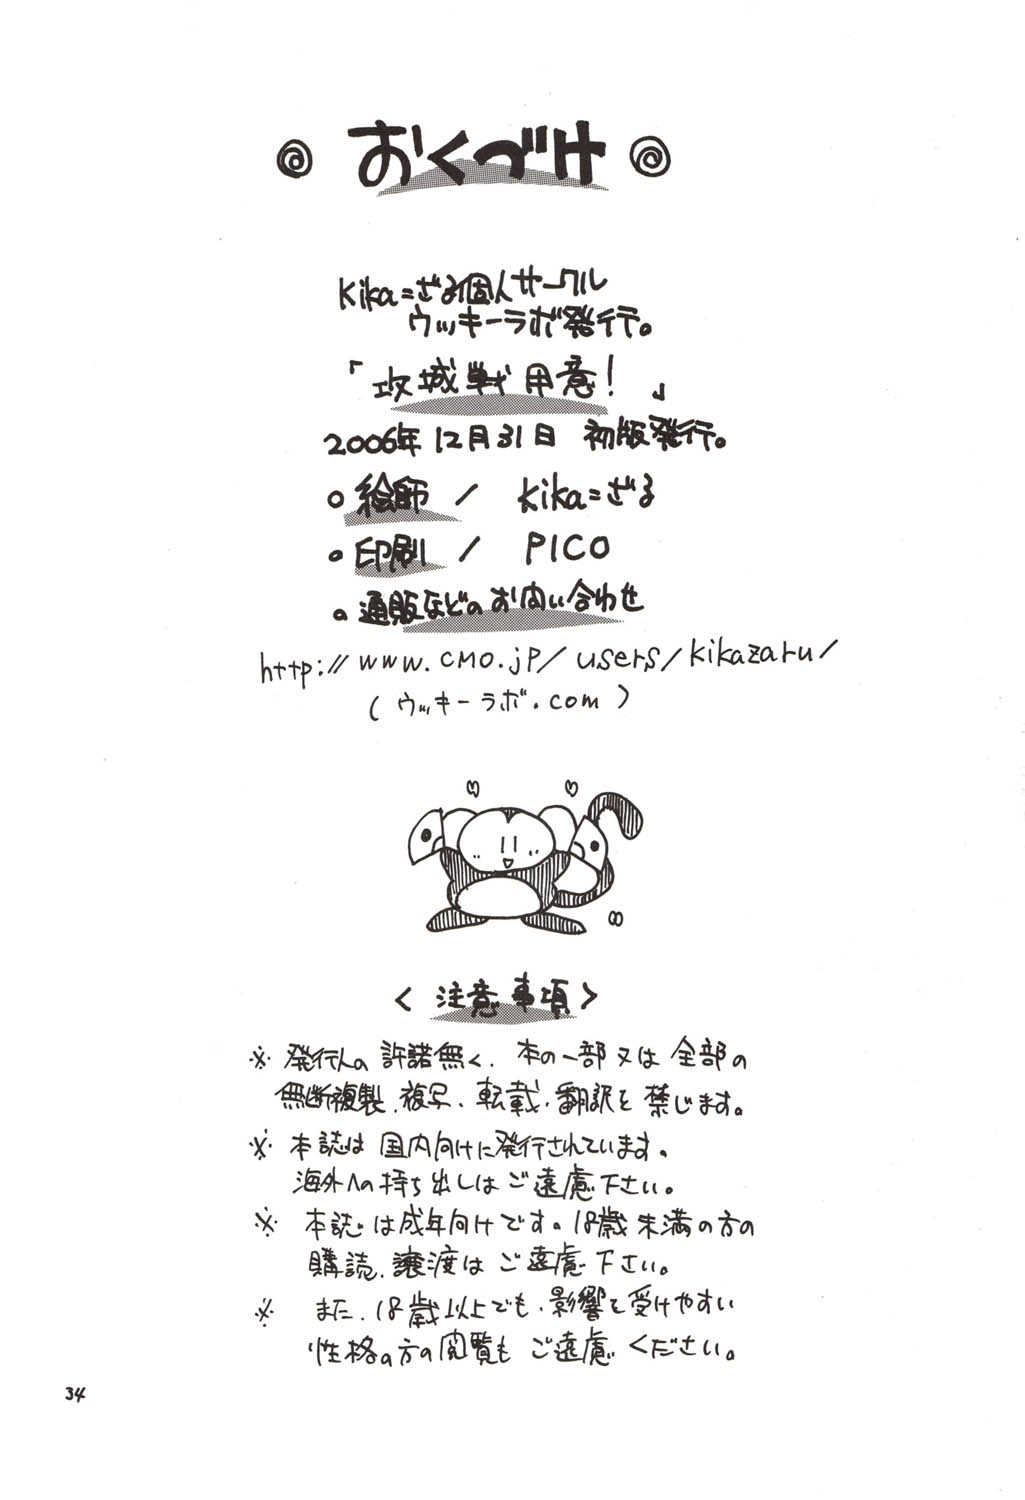 おくづけ
Kika=ざる個人サークル
ウッキーラボ発行。
「攻城戦用意！」
2006年12月31日 初版発行。
○絵師 / Kika=ざる
○印刷 / PICO
○通販などのお問い合わせ
http://www.cmo.jp/users/kikazaru/
(ウッキーラボ.com)
<注意事項>
※発行人の許諾無く、本の一部又は全部の
無断複製、複写、転載、翻訳を禁じます。
※本誌は国内向けに発行されています。
海外への持ち出しはご遠慮下さい。
※本誌は成年向けです。18歳未満の方の
購読、譲渡はご遠慮下さい。
※また、18歳以上でも、影響を受けやすい
性格の方の閲覧もご遠慮ください。
34